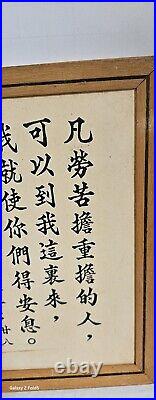 凡勞苦擔重擔的人，
可以到我這裏來，
我就使你們得安息。
廿八
Galaxy Z Fold5